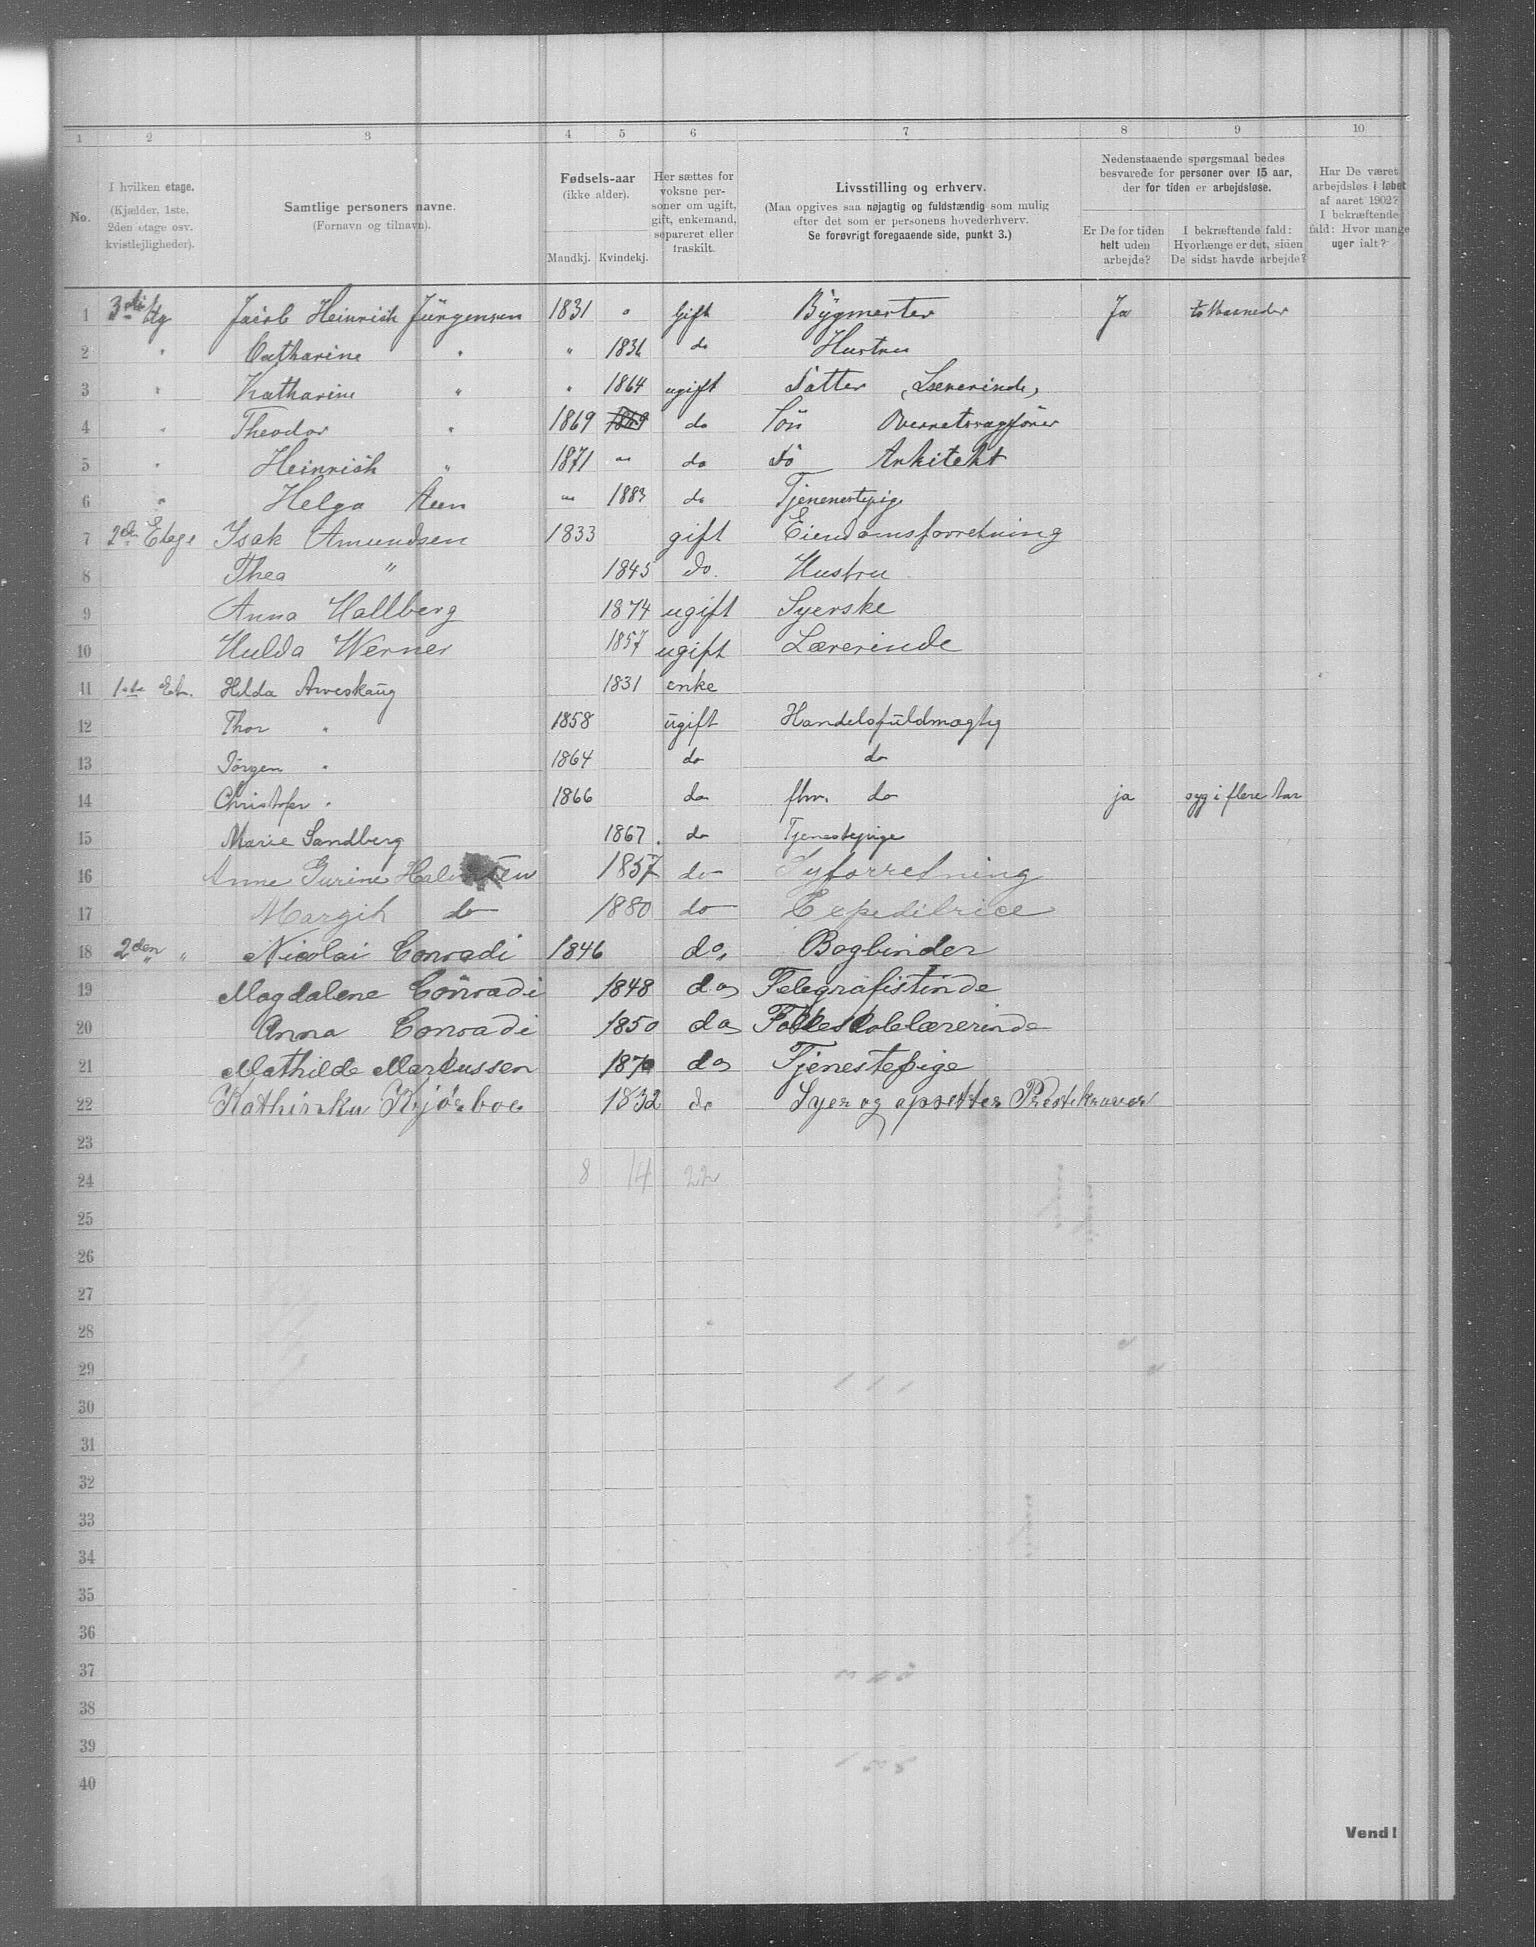 1 2 3 4 5 6 7 8 9 10
No.
I hvilken etage. (Kjælder, 1ste, 2den etage osv. kvistlejligheder).
Samtlige personers navne. (Fornavn og tilnavn).
Fødsels-aar (ikke alder). Mandkj. Kvindekj.
Her sættes for voksne personer om ugift, gift, enkemand, separeret eller fraskilt.
Livsstilling og erhverv. (Maa opgives saa nøjagtig og fuldstændig som mulig efter det som er personens hovederhverv. Se forøvrigt foregaaende side, punkt 3.)
Nedenstaaende spørgsmaal bedes besvarede for personer over 15 aar, der for tiden er arbejdsløse.
Er De for tiden helt uden arbejde?
I bekræftende fald: Hvorlænge er det, siden De sidst havde arbejde?
Har De været arbejdsløs i løbet af aaret 1902? I bekræftende fald: Hvor mange uger ialt?
1 3die Etg Jacob Heinrich Jürgensen 1831 " Gift Bygmester Ja Maaneder
2 " Catharine " " 1836 do Hustru
3 " Katharine " " 1864 ugift Datter (Lærerinde)
4 " Theodor " 1869 1869 do Sön Overretssagförer
5 " Heinrich " 1871 " do do Arkitekt
6 " Helga Steen " 1883 do Tjenestepige
7 2de Etage Isak Amundsen 1833 gift Eiendomsforretning
8 Thea " 1845 do. Hustru
9 Anna Hallberg 1874 ugift Syerske
10 Hulda Werner 1857 ugift Lærerinde
11 1ste Et. Hilda Arveskaug 1831 enke
12 Thor " 1858 ugift Handelsfuldmægtig
13 Jörgen " 1864 do do
14 Christofer " 1866 do fhv. do ja syg i flere aar
15 Marie Sandberg 1867 do Tjenestepige
16 Anne Gurine 1857 do Syforretning
17 Margith do 1880 do Expeditrice
18 2den " " Nicolai Conradi 1846 do, Bogbinder
19 Magdalene Conradi 1848 do, Telegrafistinde
20 Anna Conradi 1850 do, Folkeskolelærerinde
21 Mathilde Markussen 1870 do, Tjenestepige
22 Kathinka Kjörboe 1832 do Syer og opsetter Prestekraver
23
24 8 14 22
25
26
27
28
29
30
31
32
33
34
35
36
37
38
39
40
Vend!